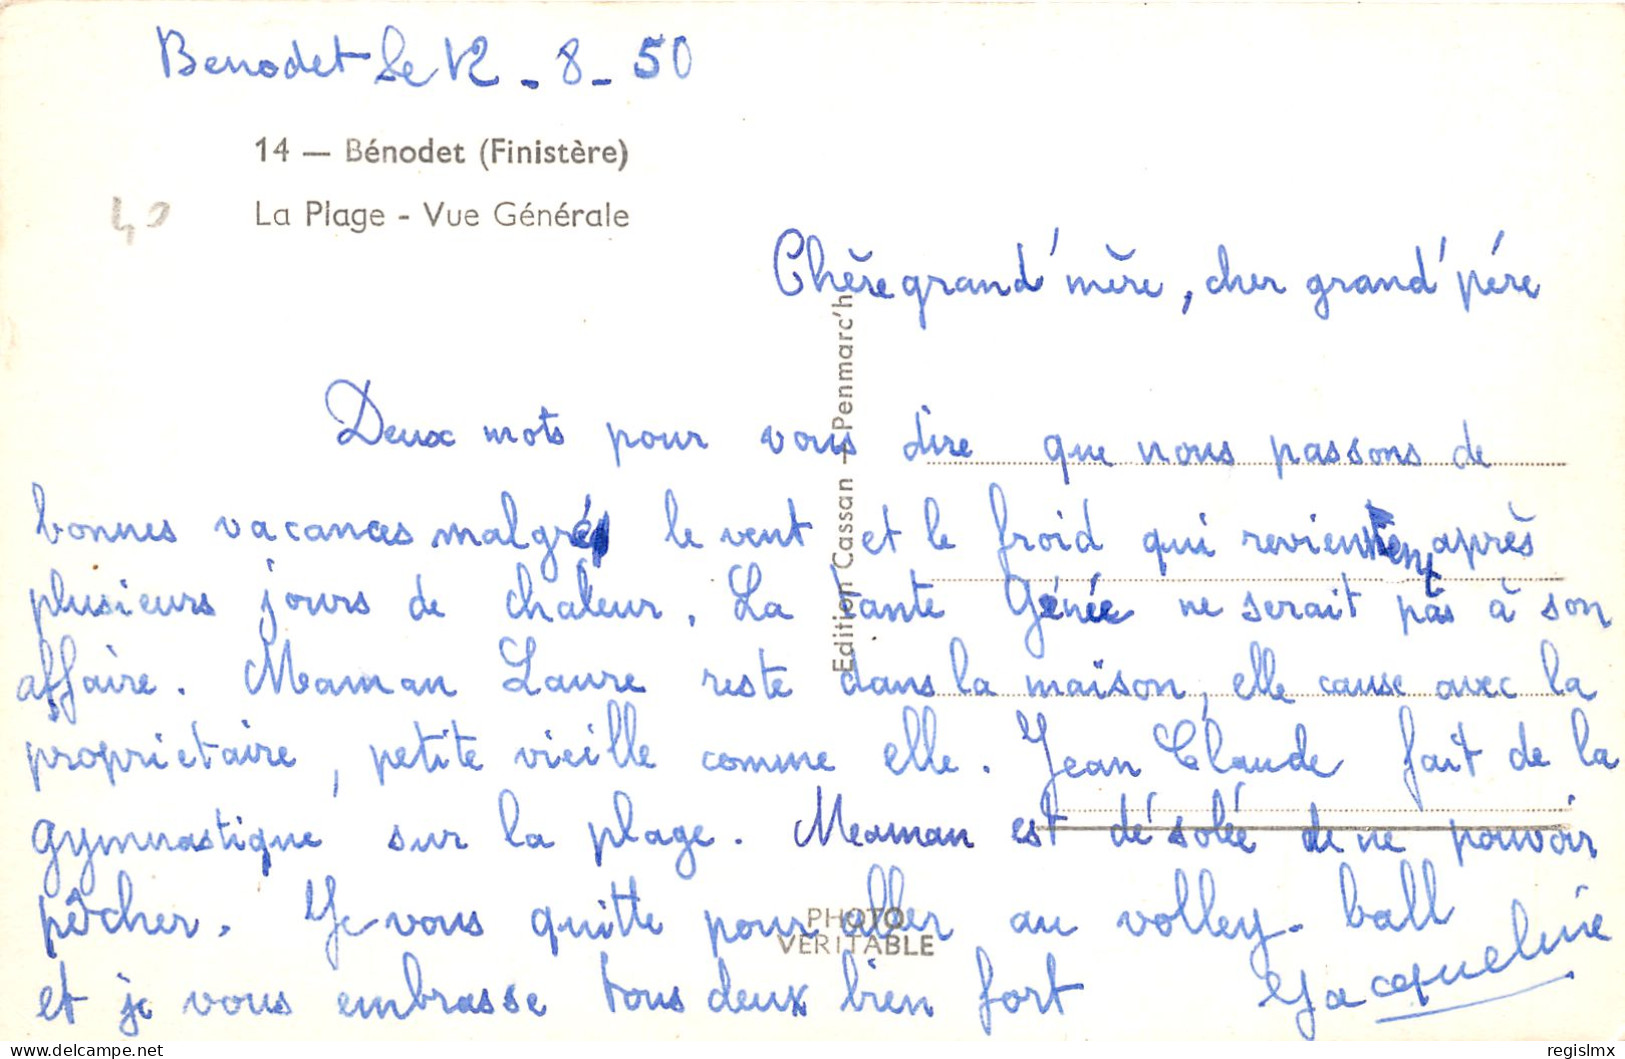 Benodet le 12 - 8 - 50
14 — Bénodet (Finistère)
La Plage - Vue Générale
40
Chère grand'mère, cher grand'père
Edition Cassan - Penmarc'h
Deux mots pour vous dire que nous passons de
bonnes vacances malgré le vent et le froid qui reviennent après
plusieurs jours de chaleur. La tante Génée ne serait pas à son
affaire. Maman Laure reste dans la maison, elle cause avec la
propriétaire, petite vieille comme elle. Jean Claude fait de la
gymnastique sur la plage. Maman est désolée de ne pouvoir
pêcher. Je vous quitte pour aller au volley-ball
PHOTO
VERITABLE
et je vous embrasse tous deux bien fort Jacqueline
delcampe.net
regislmx